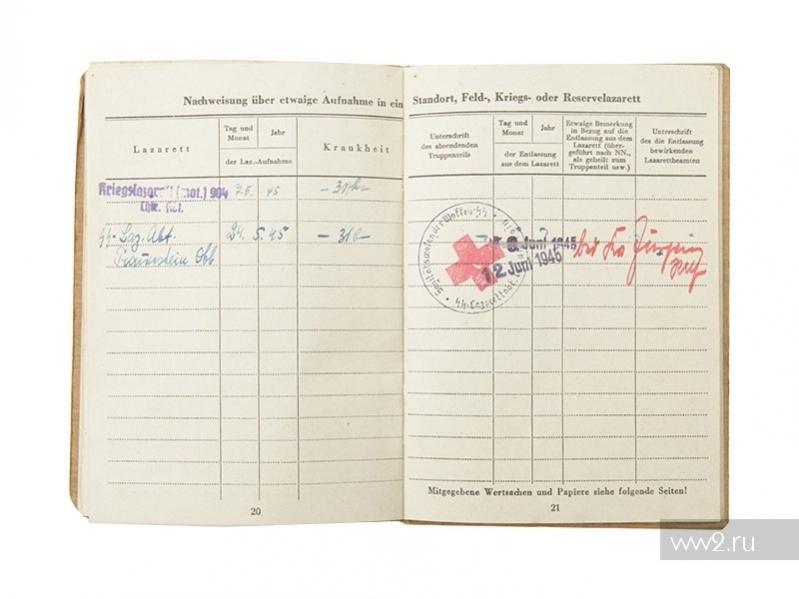 Nachweisung über etwaige Aufnahme in ein Standort, Feld-, Kriegs- oder Reservelazarett
Lazarett
Tag und
Monat
Jahr
der Laz.-Aufnahme
Krankheit
Kriegslazarett (mot.) 904
2.5. 45
- 31b -
SS-Laz. Abt.
24. 5. 45
- 31b -
20
Unterschrift
des absendenden
Truppenteils
Tag und
Monat
Jahr
der Entlassung
aus dem Lazarett
Etwaige Bemerkung
in Bezug auf die
Entlassung aus
dem Lazarett (über-
geführt nach NN.,
als geheilt zum
Truppenteil usw.)
Unterschrift
des die Entlassung
bewirkenden
Lazarettbeamten
Sanitätswesen der Waffen-SS
SS-Lazarettabt.
8. Juni 1945
12. Juni 1945
Mitgegebene Wertsachen und Papiere siehe folgende Seiten!
21
ww2.ru